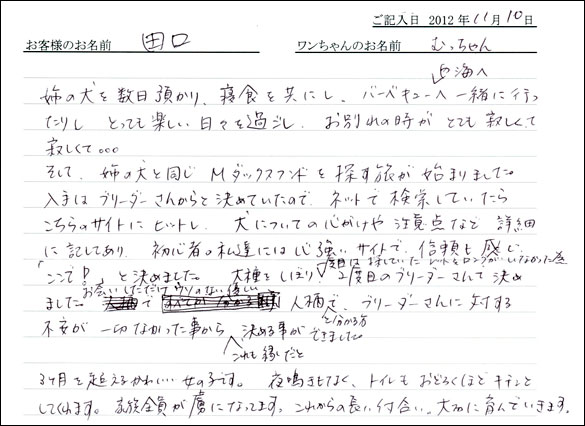 ご記入日 2012年11月10日
お客様のお名前 田口 ワンちゃんのお名前 むっちゃん
海へ
姉の犬を数日預かり、寝食を共にし、バーベキューへ一緒に行っ
たりし とっても楽しい日々を過ごし、お別れの時がとても寂しくて
寂しくて。。。
そして、姉の犬と同じMダックスフンドを探す旅が始まりました。
入手はブリーダーさんからと決めていたので、ネットで検索していたら
こちらのサイトにヒットし、犬についての心がけや注意点など詳細
に記してあり、初心者の私達には心強いサイトで、信頼も感じ
1度目は探していたレッドのロングがいなかった為
「ここで!」と決めました。犬種をしぼり、2度目のブリーダーさんで決め
お会いしただけでウソのない優しい
ました。で 人柄で、ブリーダーさんに対する
と分かる方
不安が一切なかった事から 決める事ができました。
これも縁だと
3ヶ月を迎えるかわいい女の子です。夜鳴きもなく、トイレもおどろくほどキチンと
してくれます。家族全員が虜になってます。これからの長い付合い、大切に育んでいきます。